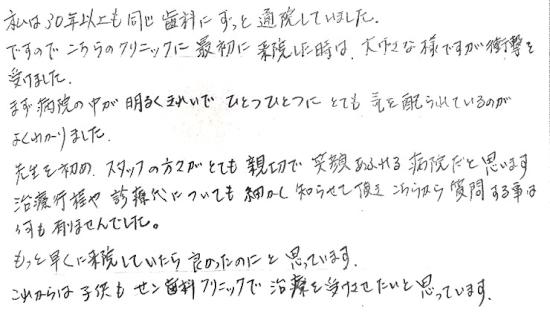 私は30年以上も同じ歯科にずっと通院していました。
ですのでこちらのクリニックに最初に来院した時は、大げさな様ですが衝撃を
受けました。
まず病院の中が明るくきれいでひとつひとつにとても気を配られているのが
よくわかりました。
先生を初め、スタッフの方々がとても親切で笑顔あふれる病院だと思います
治療行程や診療代についても細かく知らせて頂きこちらから質問する事は
何も有りませんでした。
もっと早くに来院していたら良かったのにと思っています。
これからは子供もゼン歯科クリニックで治療を受けさせたいと思っています。